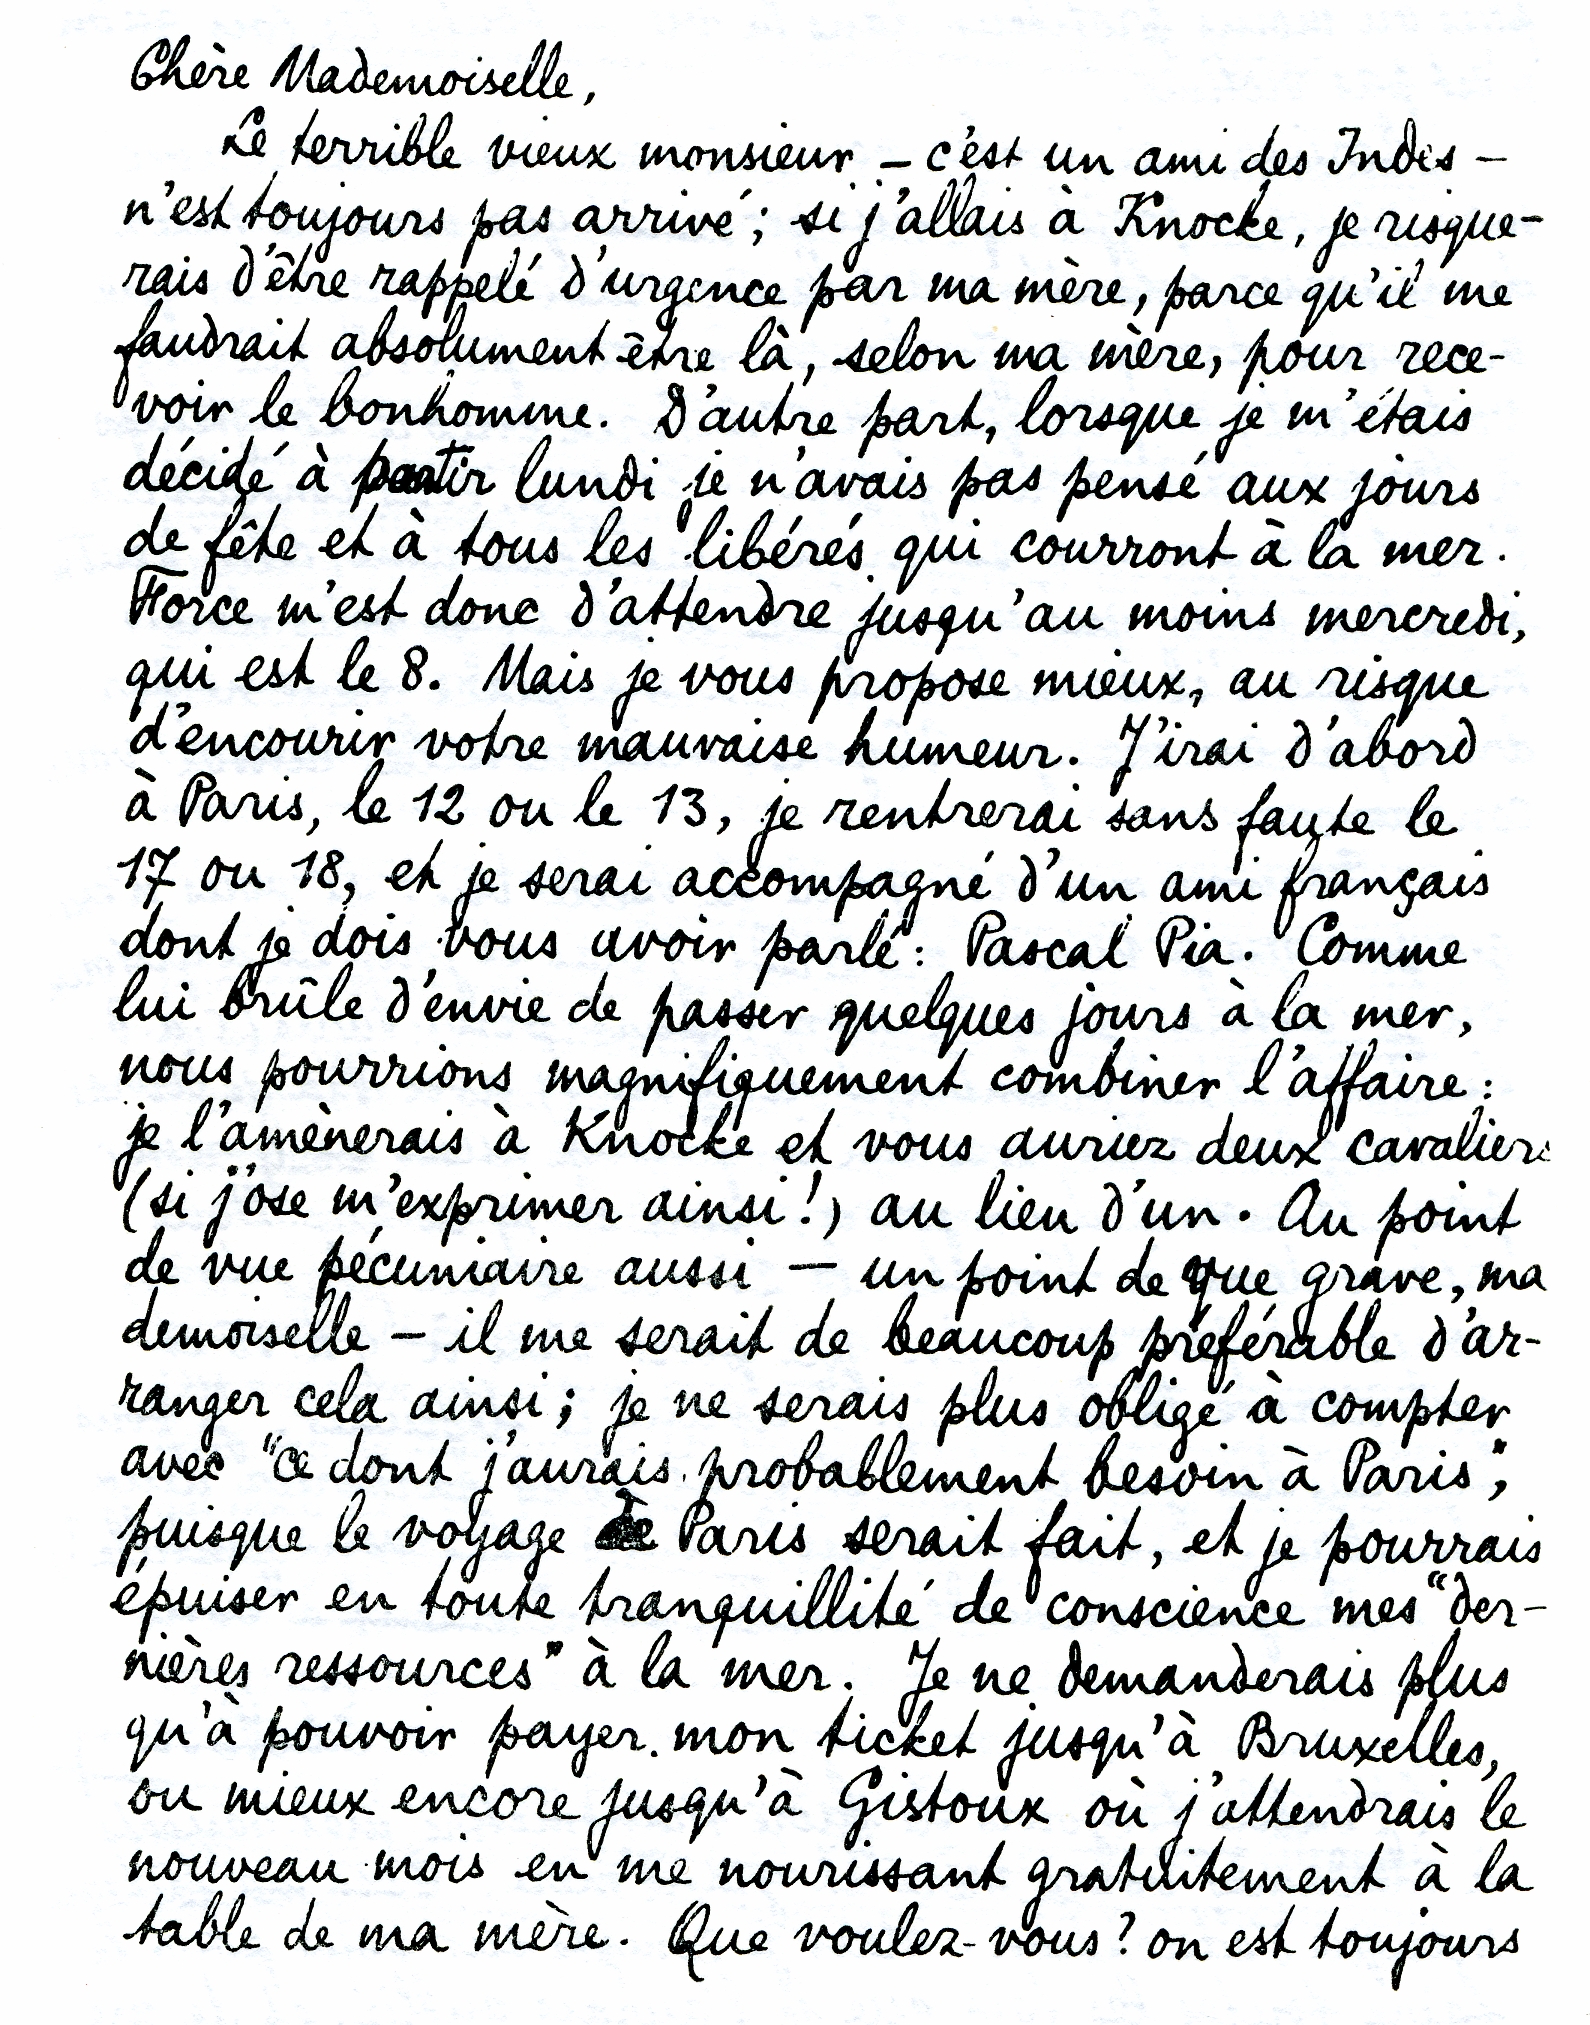 Chère Mademoiselle,
Le terrible vieux monsieur – c'est un ami des Indes –
n'est toujours pas arrivé ; si j'allais à Knocke, je risque-
rais d'être rappelé d'urgence par ma mère, parce qu'il me
faudrait absolument être là, selon ma mère, pour rece-
voir le bonhomme. D'autre part, lorsque je m'étais
décidé à partir lundi je n'avais pas pensé aux jours
de fête et à tous les libérés qui courront à la mer.
Force m'est donc d'attendre jusqu'au moins mercredi,
qui est le 8. Mais je vous propose mieux, au risque
d'encourir votre mauvaise humeur. J'irai d'abord
à Paris, le 12 ou le 13, je rentrerai sans faute le
17 ou 18, et je serai accompagné d'un ami français
dont je dois vous avoir parlé : Pascal Pia. Comme
lui brûle d'envie de passer quelques jours à la mer,
nous pourrions magnifiquement combiner l'affaire :
je l'amènerais à Knocke et vous auriez deux cavaliers
(si j'ose m'exprimer ainsi !) au lieu d'un. Au point
de vue pécuniaire aussi – un point de vue grave, ma
demoiselle – il me serait de beaucoup préférable d'ar-
ranger cela ainsi ; je ne serais plus obligé à compter
avec "ce dont j'aurais probablement besoin à Paris",
puisque le voyage de Paris serait fait, et je pourrais
épuiser en toute tranquillité de conscience mes "der-
nières ressources" à la mer. Je ne demanderais plus
qu'à pouvoir payer mon ticket jusqu'à Bruxelles,
ou mieux encore jusqu'à Gistoux où j'attendrais le
nouveau mois en me nourissant gratuitement à la
table de ma mère. Que voulez-vous ? on est toujours